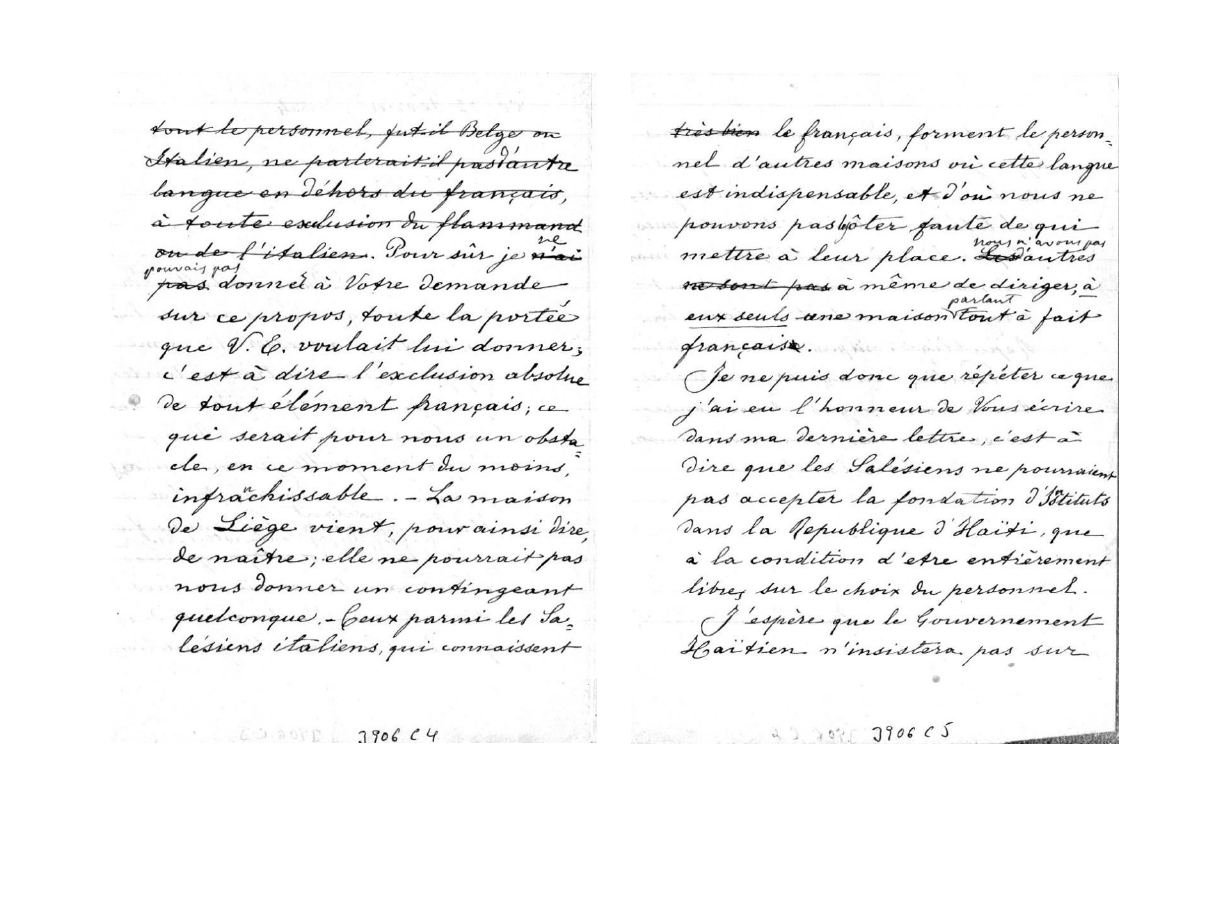 tout le personnel, fut-il Belge ou
Italien, ne parlerait-il pas d'autre
langue en déhors du français,
à toute exclusion du flammand
ne
ou de l'italien. Pour sûr je n'ai
pouvais pas
pas donner à Votre demande
sur ce propos, toute la portée
que V. E. voulait lui donner;
c'est à dire l'exclusion absolue
de tout élément français; ce
qui serait pour nous un obsta=
cle, en ce moment du moins,
infranchissable. - La maison
de Liège vient, pour ainsi dire,
de naître; elle ne pourrait pas
nous donner un contingeant
quelconque. - Ceux parmi les Sa=
lésiens italiens, qui connaissent
3906 C 4
très bien le français, forment le person=
nel d'autres maisons où cette langue
est indispensable, et d'où nous ne
pouvons pas ôter faute de qui
nous n'avons pas
mettre à leur place. Les d'autres
ne sont pas à même de diriger, à
parlant
eux seuls une maison tout à fait
français.
Je ne puis donc que répéter ce que
j'ai eu l'honneur de Vous écrire
dans ma dernière lettre, c'est à
dire que les Salésiens ne pourraient
pas accepter la fondation d'Istituts
dans la Republique d'Haïti, que
à la condition d'etre entièrement
libres sur le choix du personnel.
J'espère que le Gouvernement
Haïtien n'insistera pas sur
3906 C 5